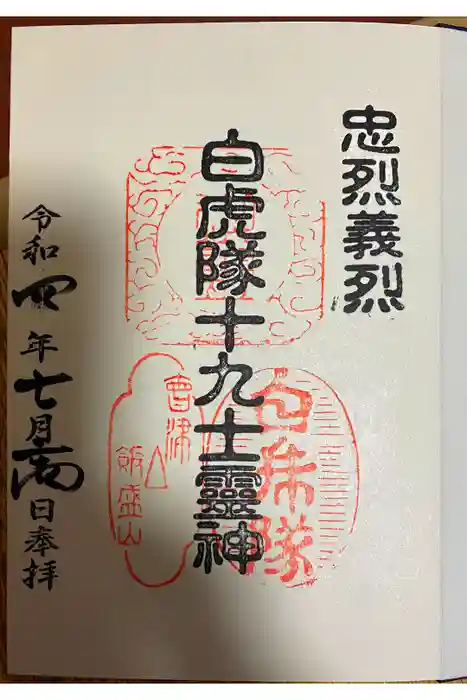 忠烈義烈
白虎隊十九士靈神
白虎隊
會津
飯盛山
令和四年七月 日奉拝